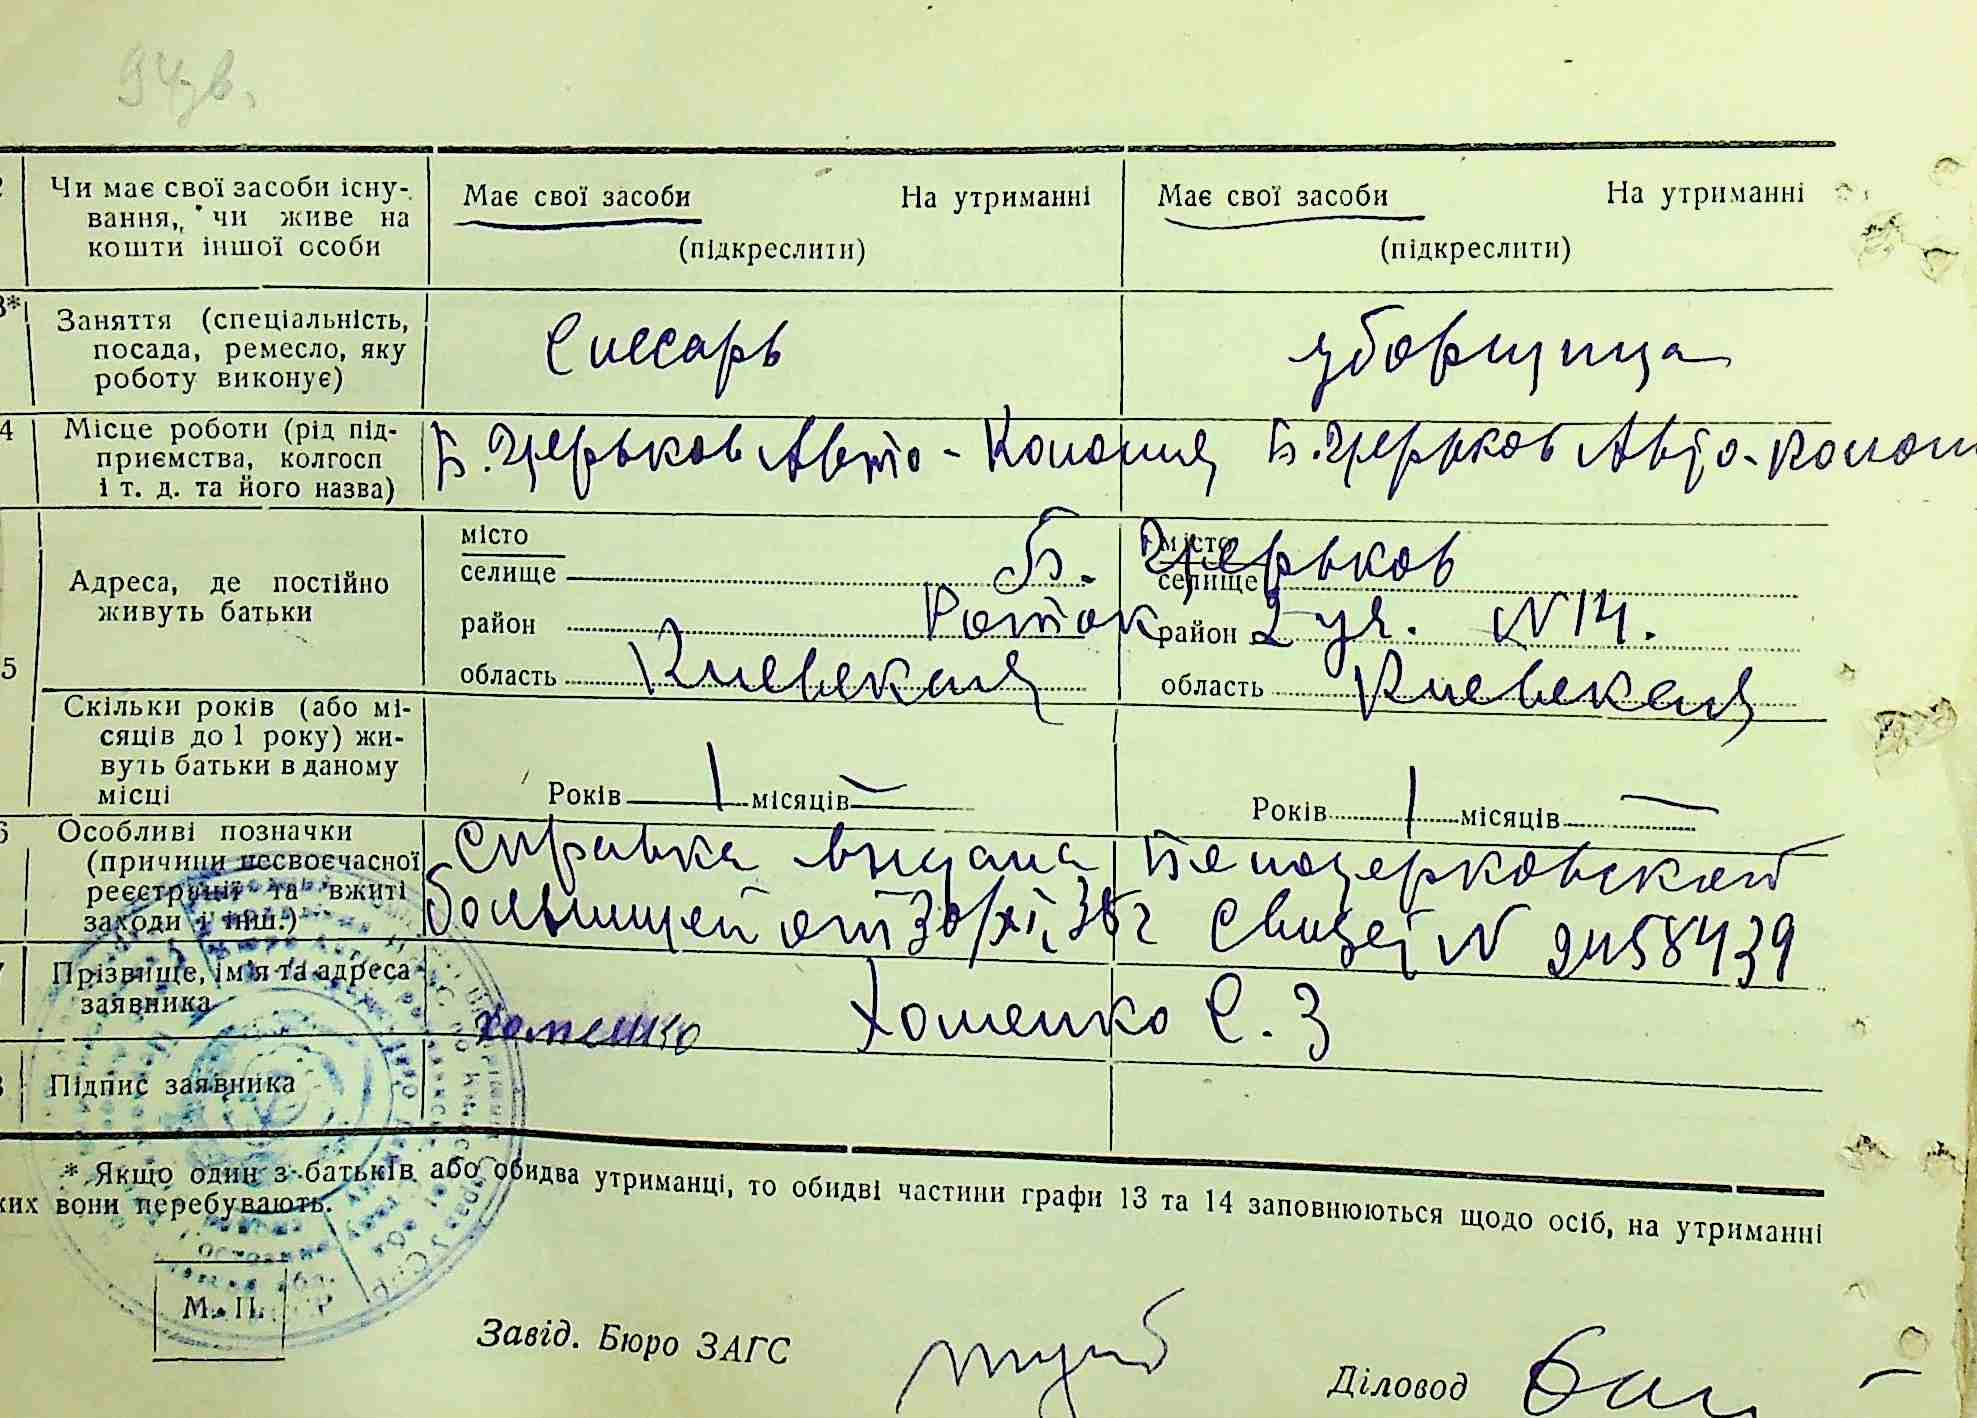 94зв.
2 Чи має свої засоби існу-
вання, чи живе на
кошти іншої особи
Має свої засоби На утриманні
(підкреслити)
Має свої засоби На утриманні
(підкреслити)
3* Заняття (спеціальність,
посада, ремесло, яку
роботу виконує)
Слесарь
уборщица
4 Місце роботи (рід під-
приємства, колгосп
і т. д. та його назва)
Б. Церьков Авто-Колония
Б. Церьков Авто-колон
5 Адреса, де постійно
живуть батьки
місто
селище
район
область Киевская
місто
селище
район
область Киевская
Б. Церьков
Роток 2 уч. N 14.
Скільки років (або мі-
сяців до 1 року) жи-
вуть батьки в даному
місці
Років 1 місяців —
Років 1 місяців —
6 Особливі позначки
(причини несвоєчасної
реєстрації та вжиті
заходи і інш.)
Справка выдана Белоцерковской
больницей от 30/XI, 38 г N 2458439
7 Прізвище, ім'я та адреса
заявника
Хоменко Хоменко С. З
8 Підпис заявника
* Якщо один з батьків або обидва утриманці, то обидві частини графи 13 та 14 заповнюються щодо осіб, на утриманні
ких вони перебувають.
М. П.
Завід. Бюро ЗАГС
Діловод